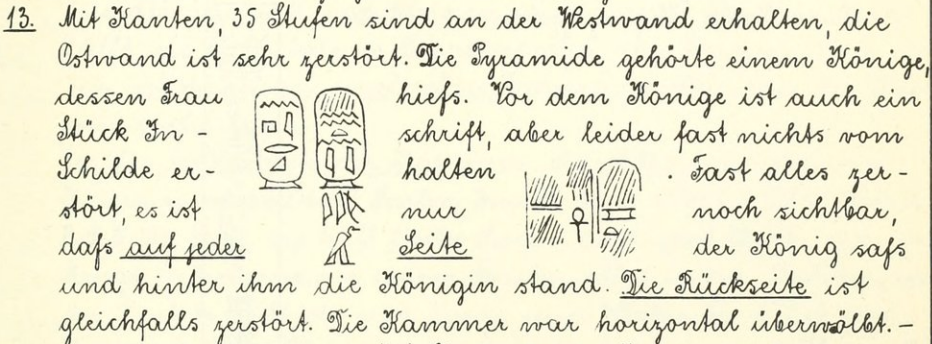 13. Mit Kanten, 35 Stufen sind an der Westwand erhalten, die
Ostwand ist sehr zerstört. Die Pyramide gehörte einem Könige,
dessen Frau hiefs. Vor dem Könige ist auch ein
Stück In- schrift, aber leider fast nichts vom
Schilde er- halten . Fast alles zer-
stört, es ist nur noch sichtbar,
dafs auf jeder Seite der König safs
und hinter ihm die Königin stand. Die Rückseite ist
gleichfalls zerstört. Die Kammer war horizontal überwölbt. —